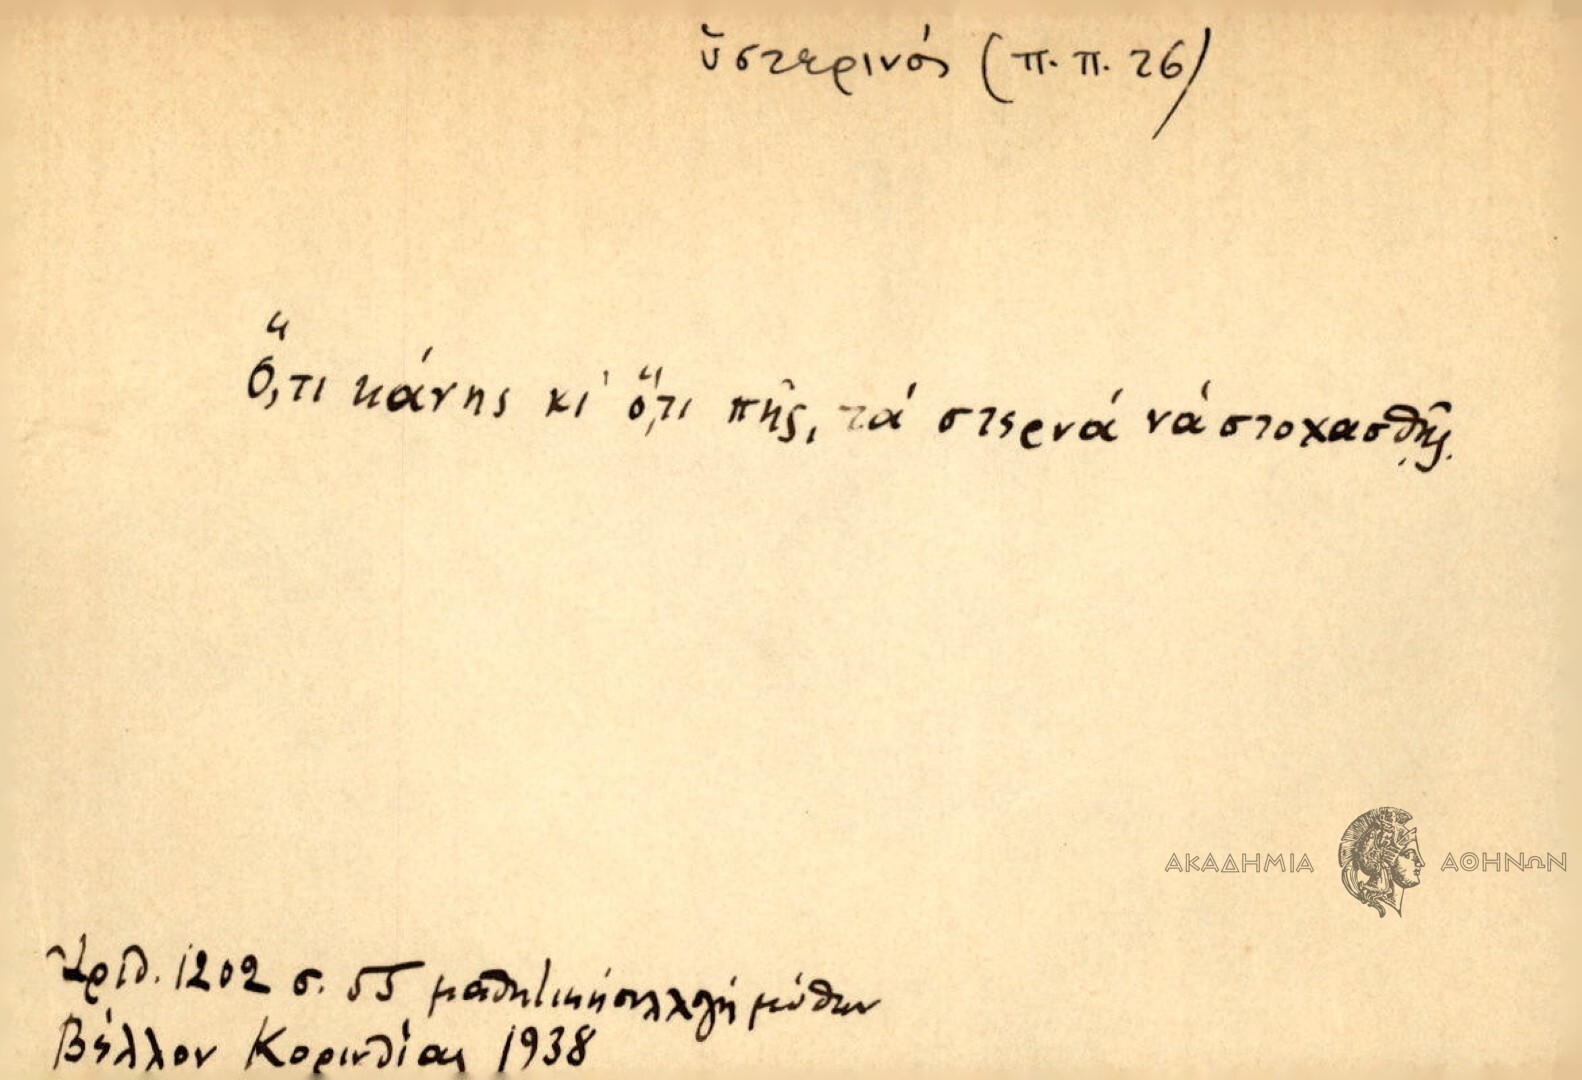 ὑστερινός (π. π. 26)
Ὅ,τι κάνῃς κι' ὅ,τι πῇς, τά στερνά νά στοχασθῇς.
ΑΚΑΔΗΜΙΑ ΑΘΗΝΩΝ
Ἀριθ. 1202 σ. 55 μαθητική συλλογή μύθων
Βέλλον Κορινθίας 1938